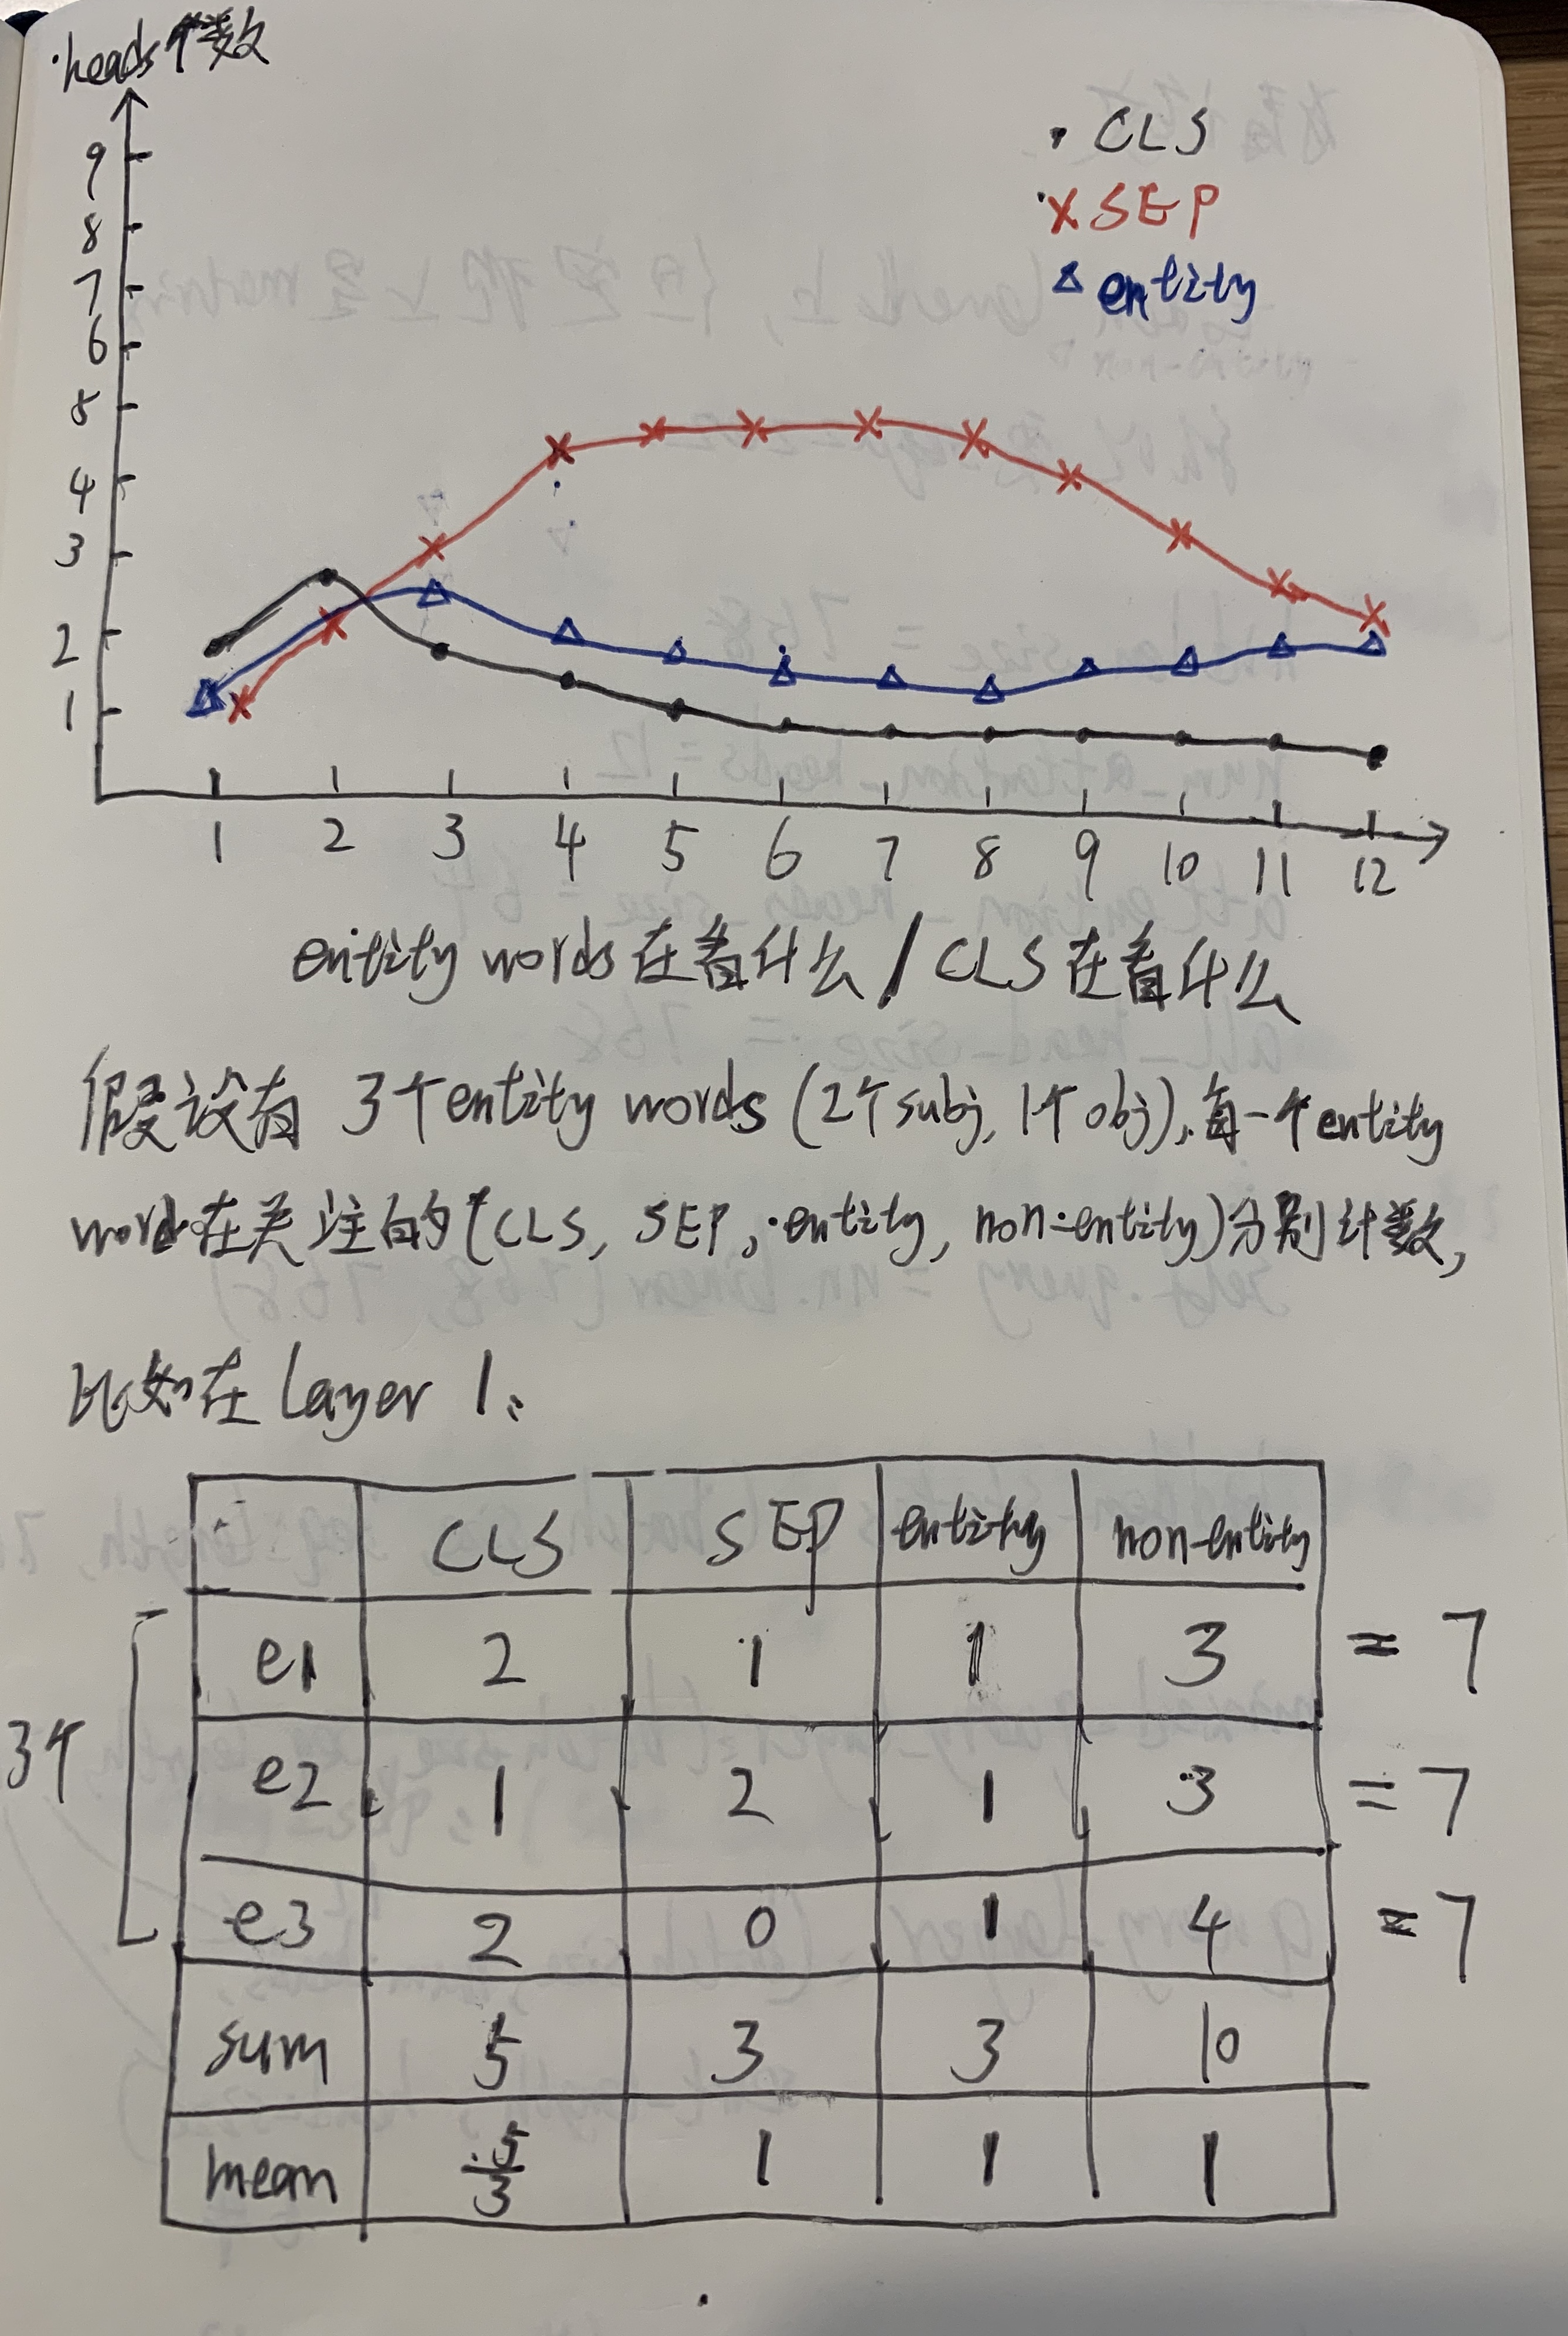 heads个数
9
8
7
6
8
4
3
2
1
• CLS
× SEP
△ entity
1 2 3 4 5 6 7 8 9 10 11 12
entity words在看什么 / CLS在看什么
假设有 3个entity words (2个subj, 1个obj), 每一个entity
word在关注的(CLS, SEP, entity, non-entity)分别计数,
比如在 layer 1:
CLS SEP entity non-entity
e1 2 1 1 3 = 7
3个
e2 1 2 1 3 = 7
e3 2 0 1 4 = 7
sum 5 3 3 10
mean 5/3 1 1 1